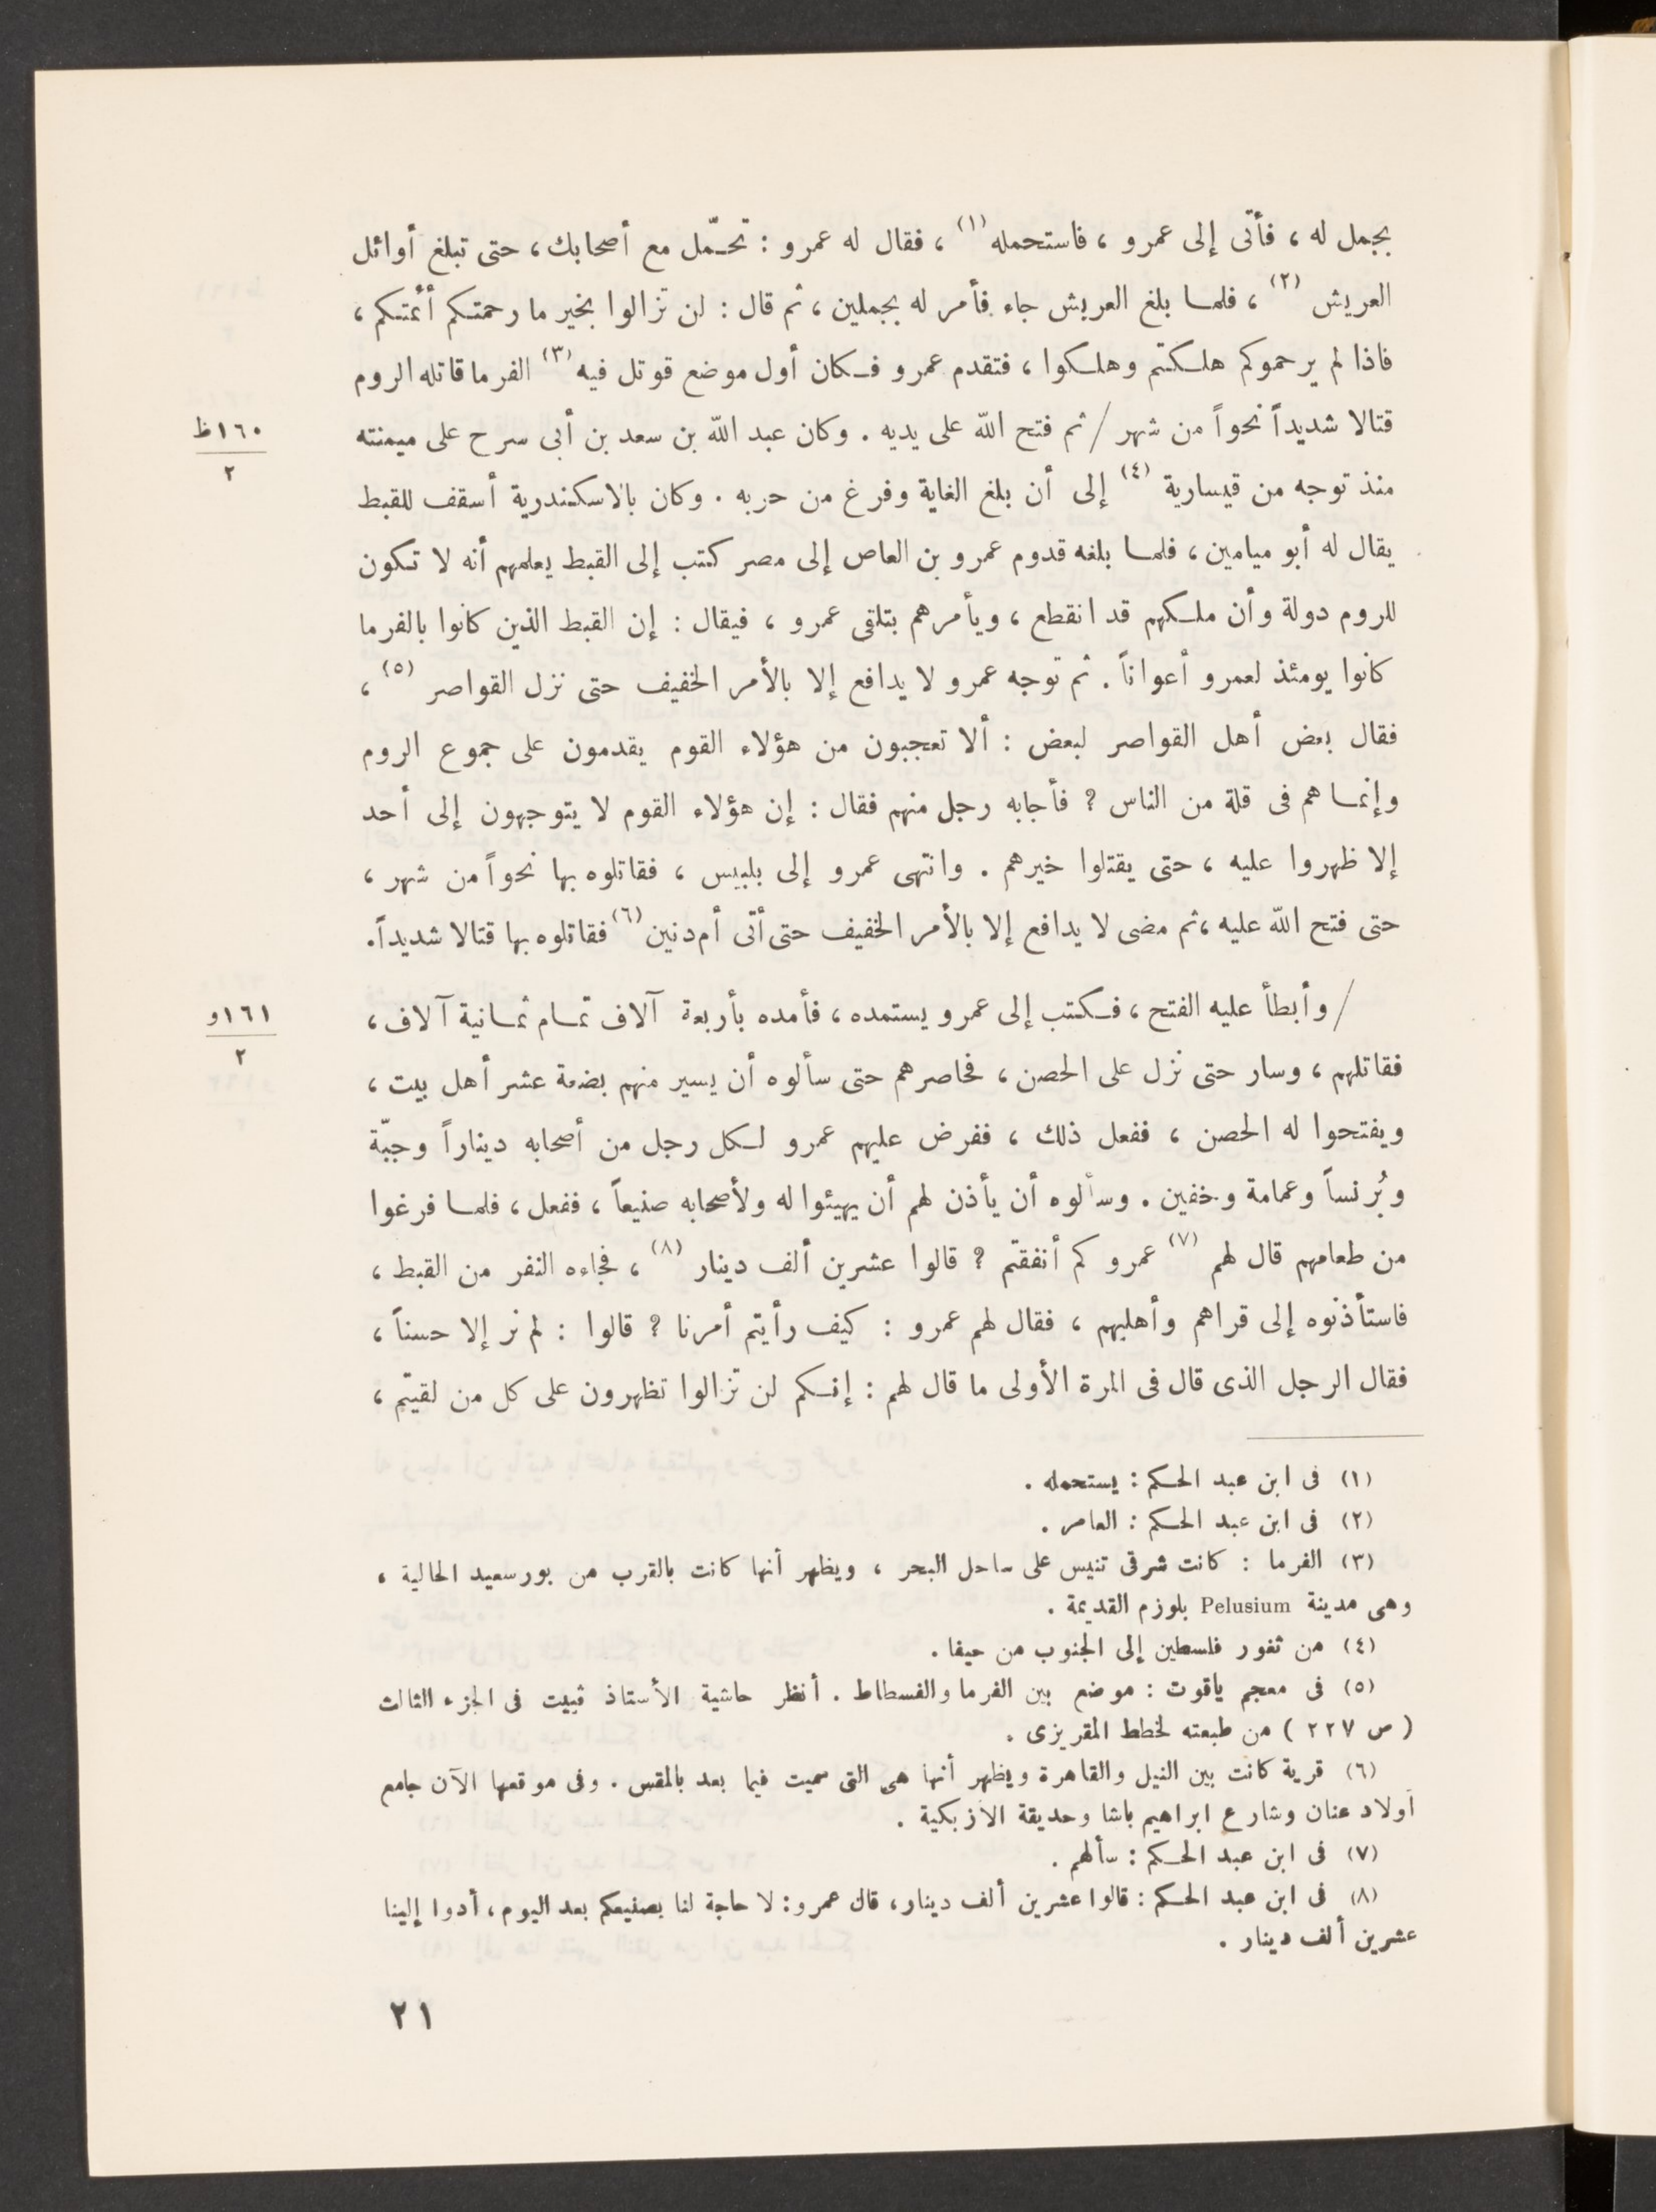 بجمل له ، فأتى إلى عمرو ، فاستحمله (١) ، فقال له عمرو : تحـمّل مع أصحابك ، حتى تبلغ أوائل
العريش (٢) ، فلمـا بلغ العريش جاء فأمر له بجملين ، ثم قال : لن تزالوا بخير ما رحمتكم أئمتكم ،
فاذا لم يرحموكم هلكتم وهلكوا ، فتقدم عمرو فكان أول موضع قوتل فيه (٣) الفرما قاتله الروم
قتالا شديداً نحواً من شهر / ثم فتح الله على يديه . وكان عبد الله بن سعد بن أبى سرح على ميمنته
١٦٠ظ
٢
منذ توجه من قيسارية (٤) إلى أن بلغ الغاية وفرغ من حربه . وكان بالاسكندرية أسقف للقبط
يقال له أبو ميامين ، فلمـا بلغه قدوم عمرو بن العاص إلى مصر كتب إلى القبط يعلمهم أنه لا تكون
للروم دولة وأن ملكهم قد انقطع ، ويأمرهم بتلقى عمرو ، فيقال : إن القبط الذين كانوا بالفرما
كانوا يومئذ لعمرو أعواناً . ثم توجه عمرو لا يدافع إلا بالأمر الخفيف حتى نزل القواصر (٥) ،
فقال بعض أهل القواصر لبعض : ألا تعجبون من هؤلاء القوم يقدمون على جموع الروم
وإنمـا هم فى قلة من الناس ؟ فأجابه رجل منهم فقال : إن هؤلاء القوم لا يتوجهون إلى أحد
إلا ظهروا عليه ، حتى يقتلوا خيرهم . وانتهى عمرو إلى بلبيس ، فقاتلوه بها نحواً من شهر ،
حتى فتح الله عليه ، ثم مضى لا يدافع إلا بالأمر الخفيف حتى أتى أم دنين (٦) فقاتلوه بها قتالا شديداً.
/ وأبطأ عليه الفتح ، فكتب إلى عمرو يستمده ، فأمده بأربعة آلاف تمـام ثمـانية آلاف ،
١٦١و
٢
فقاتلهم ، وسار حتى نزل على الحصن ، فحاصرهم حتى سألوه أن يسير منهم بضعة عشر أهل بيت ،
ويفتحوا له الحصن ، ففعل ذلك ، ففرض عليهم عمرو لكل رجل من أصحابه ديناراً وجبّة
وبُرنساً وعمامة وخفين . وسألوه أن يأذن لهم أن يهيئوا له ولأصحابه صنيعاً ، ففعل ، فلمـا فرغوا
من طعامهم قال لهم (٧) عمرو كم أنفقتم ؟ قالوا عشرين ألف دينار (٨) ، فجاءه النفر من القبط ،
فاستأذنوه إلى قراهم وأهليهم ، فقال لهم عمرو : كيف رأيتم أمرنا ؟ قالوا : لم نر إلا حسناً ،
فقال الرجل الذى قال فى المرة الأولى ما قال لهم : إنكم لن تزالوا تظهرون على كل من لقيتم ،
(١) فى ابن عبد الحكم : يستحمله .
(٢) فى ابن عبد الحكم : العامر .
(٣) الفرما : كانت شرقى تنيس على ساحل البحر ، ويظهر أنها كانت بالقرب من بورسعيد الحالية ،
وهى مدينة Pelusium بلوزم القديمة .
(٤) من ثغور فلسطين إلى الجنوب من حيفا .
(٥) فى معجم ياقوت : موضع بين الفرما والفسطاط . أنظر حاشية الأستاذ ڤييت فى الجزء الثالث
( ص ٢٢٧ ) من طبعته لخطط المقريزى .
(٦) قرية كانت بين النيل والقاهرة ويظهر أنها هى التى سميت فيما بعد بالمقس . وفى موقعها الآن جامع
أولاد عنان وشارع ابراهيم باشا وحديقة الأزبكية .
(٧) فى ابن عبد الحكم : سألهم .
(٨) فى ابن عبد الحكم : قالوا عشرين ألف دينار ، قال عمرو : لا حاجة لنا بصنيعكم بعد اليوم ، أدوا إلينا
عشرين ألف دينار .
٢١